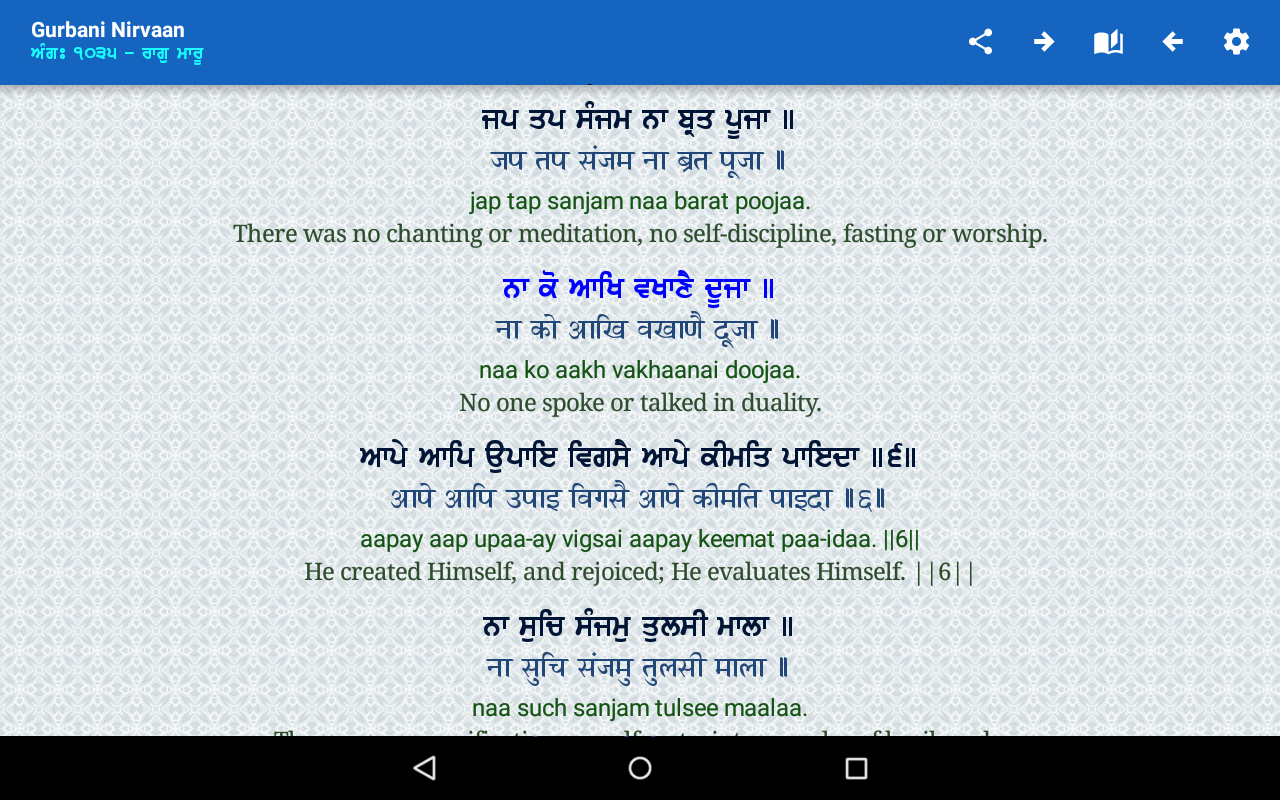 Gurbani Nirvaan
ਅੰਗਃ ੧੦੩੫ – ਰਾਗੁ ਮਾਰੂ
ਜਪ ਤਪ ਸੰਜਮ ਨਾ ਬ੍ਰਤ ਪੂਜਾ ॥
जप तप संजम ना ब्रत पूजा ॥
jap tap sanjam naa barat poojaa.
There was no chanting or meditation, no self-discipline, fasting or worship.
ਨਾ ਕੋ ਆਖਿ ਵਖਾਣੈ ਦੂਜਾ ॥
ना को आखि वखाणै दूजा ॥
naa ko aakh vakhaanai doojaa.
No one spoke or talked in duality.
ਆਪੇ ਆਪਿ ਉਪਾਇ ਵਿਗਸੈ ਆਪੇ ਕੀਮਤਿ ਪਾਇਦਾ ॥੬॥
आपे आपि उपाइ विगसै आपे कीमति पाइदा ॥६॥
aapay aap upaa-ay vigsai aapay keemat paa-idaa. ||6||
He created Himself, and rejoiced; He evaluates Himself. ||6||
ਨਾ ਸੁਚਿ ਸੰਜਮੁ ਤੁਲਸੀ ਮਾਲਾ ॥
ना सुचि संजमु तुलसी माला ॥
naa such sanjam tulsee maalaa.